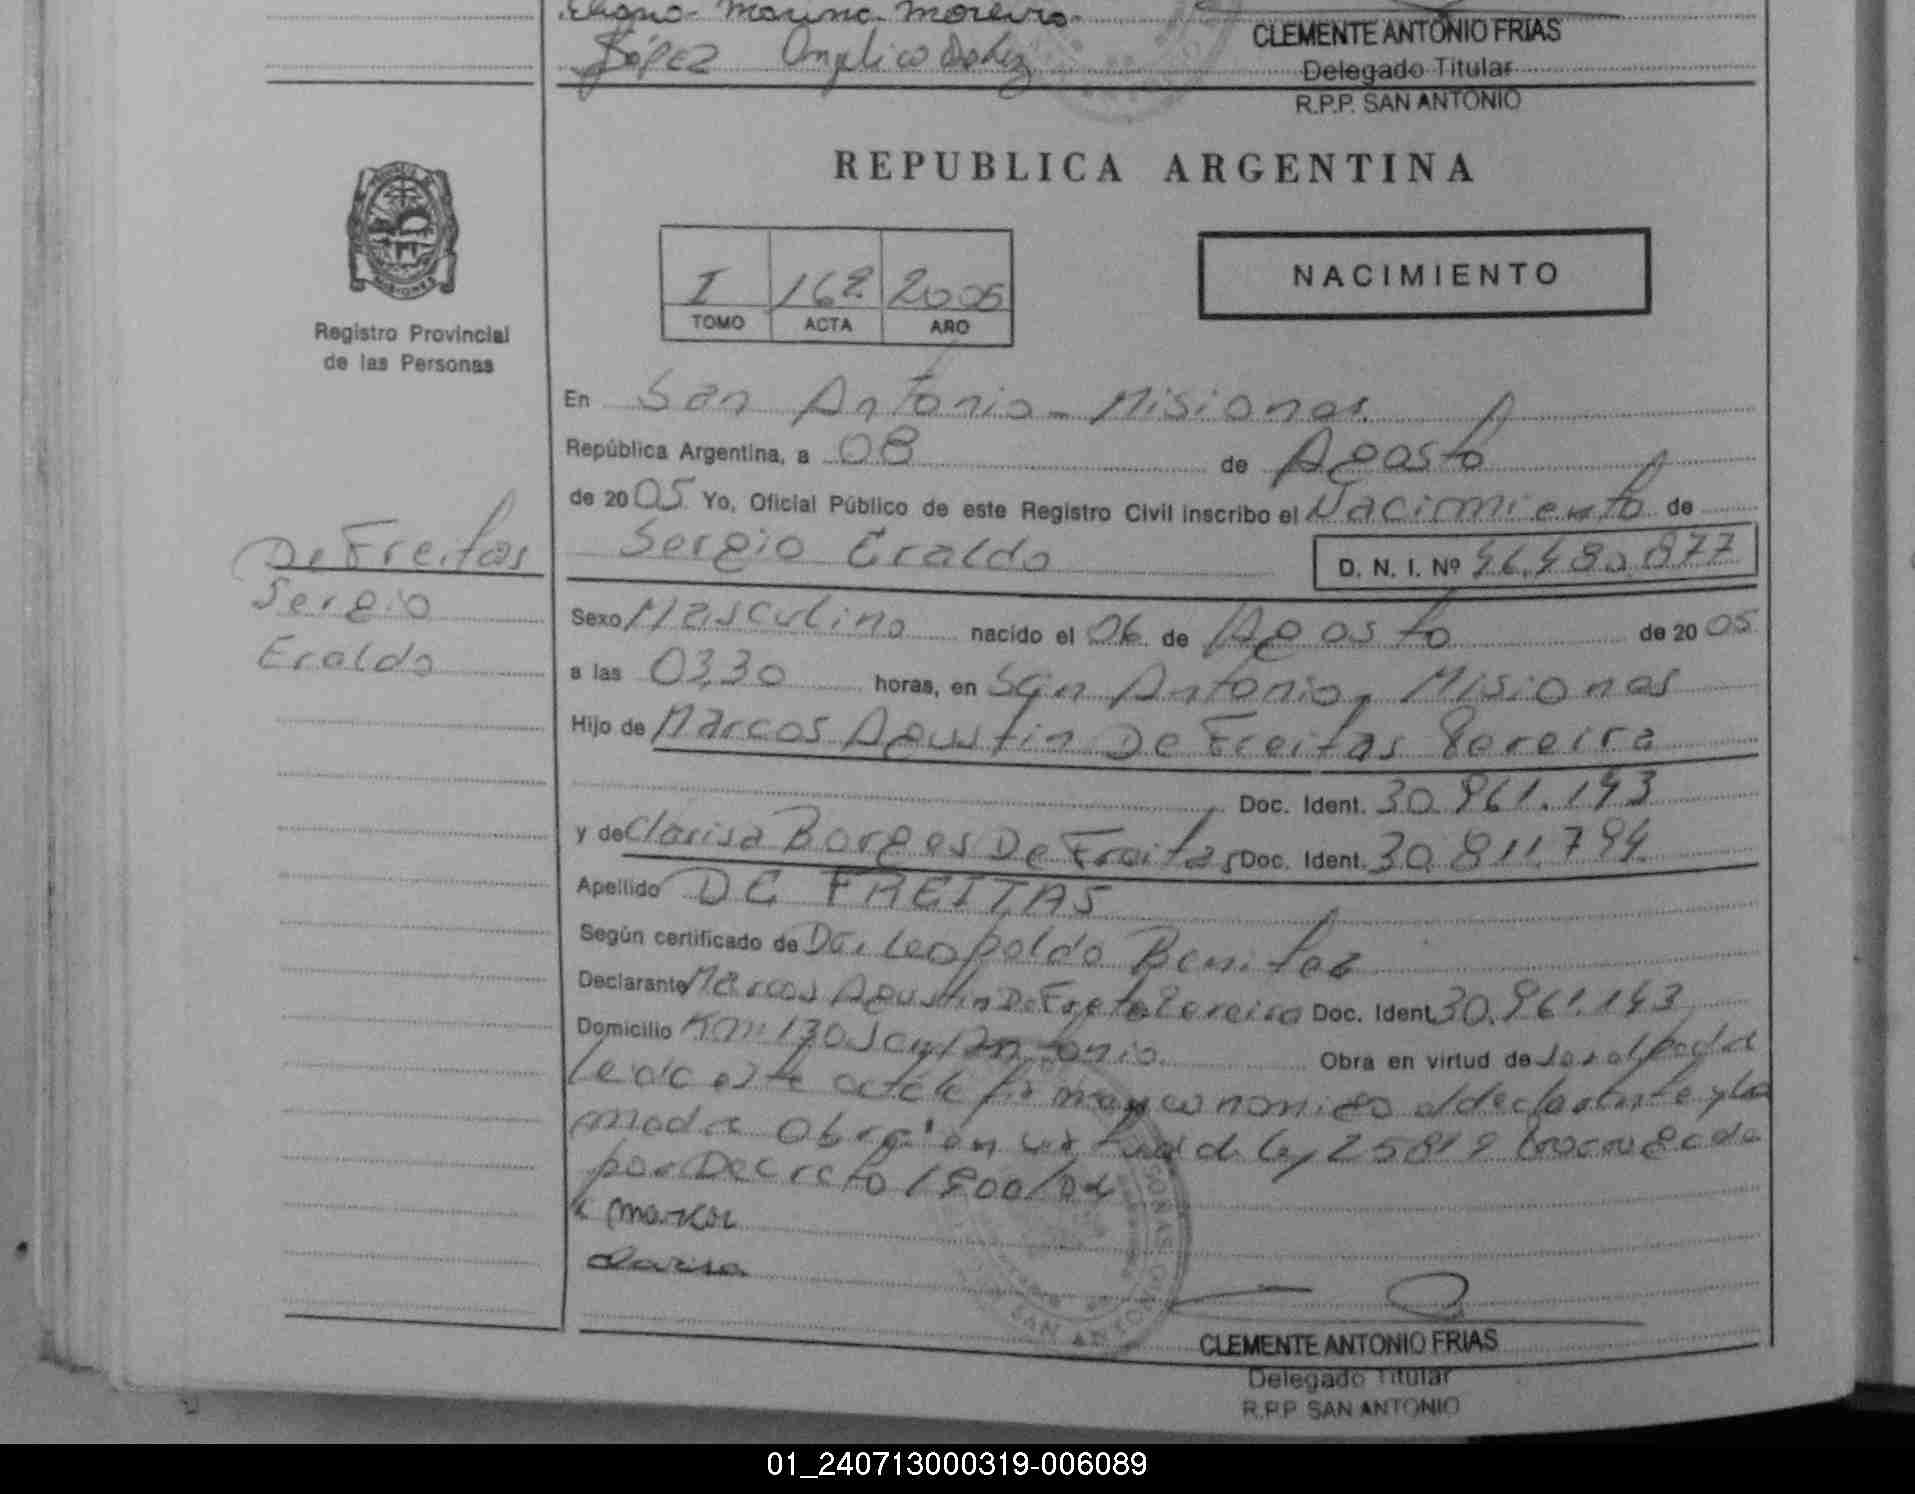 Marina Moreira
López
CLEMENTE ANTONIO FRIAS
Delegado Titular
R.P.P. SAN ANTONIO
MISIONES
Registro Provincial
de las Personas
De Freitas
Sergio
Eraldo
REPUBLICA ARGENTINA
I 162 2005
TOMO ACTA AÑO
NACIMIENTO
En San Antonio - Misiones
República Argentina, a 08 de Agosto
de 2005 Yo, Oficial Público de este Registro Civil inscribo el Nacimiento de
Sergio Eraldo D. N. I. Nº 46.480.877
Sexo Masculino nacido el 06 de Agosto de 2005
a las 03,30 horas, en San Antonio, Misiones
Hijo de Marcos Agustin De Freitas Pereira
Doc. Ident. 30.961.143
y de Clarisa Borges De Freitas Doc. Ident. 30.811.794
Apellido DE FREITAS
Según certificado de Dr. Leopoldo Benitez
Declarante Marcos Agustin De Freitas Pereira Doc. Ident. 30.961.143
Domicilio Km 130 San Antonio Obra en virtud de
Leida el acta la firman conmigo el declarante y la
madre Obra en virtud de ley 25819
por Decreto
Marcos
Clarisa
SAN ANTONIO
CLEMENTE ANTONIO FRIAS
Delegado Titular
R.P.P. SAN ANTONIO
01_240713000319-006089